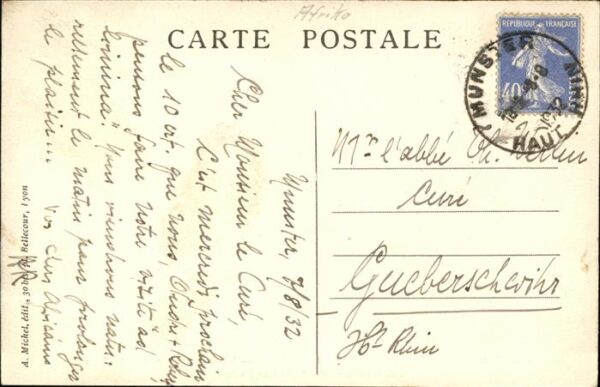 Afrika
CARTE POSTALE
REPUBLIQUE FRANÇAISE
40c
MUNSTER
7-8
1932
HAUT RHIN
Munster, 7/8/32
Cher Monsieur le Curé,
C'est mercredi prochain
le 10 ct. que nous,
pensons faire notre visite
Nous viendrons natu-
rellement le matin pour prolonger
le plaisir...
Vos chers Africains
Mr. l'abbé Ch.
Curé
Gueberschwihr
Ht Rhin
A. Michel, édit., 39 Bellecour, Lyon